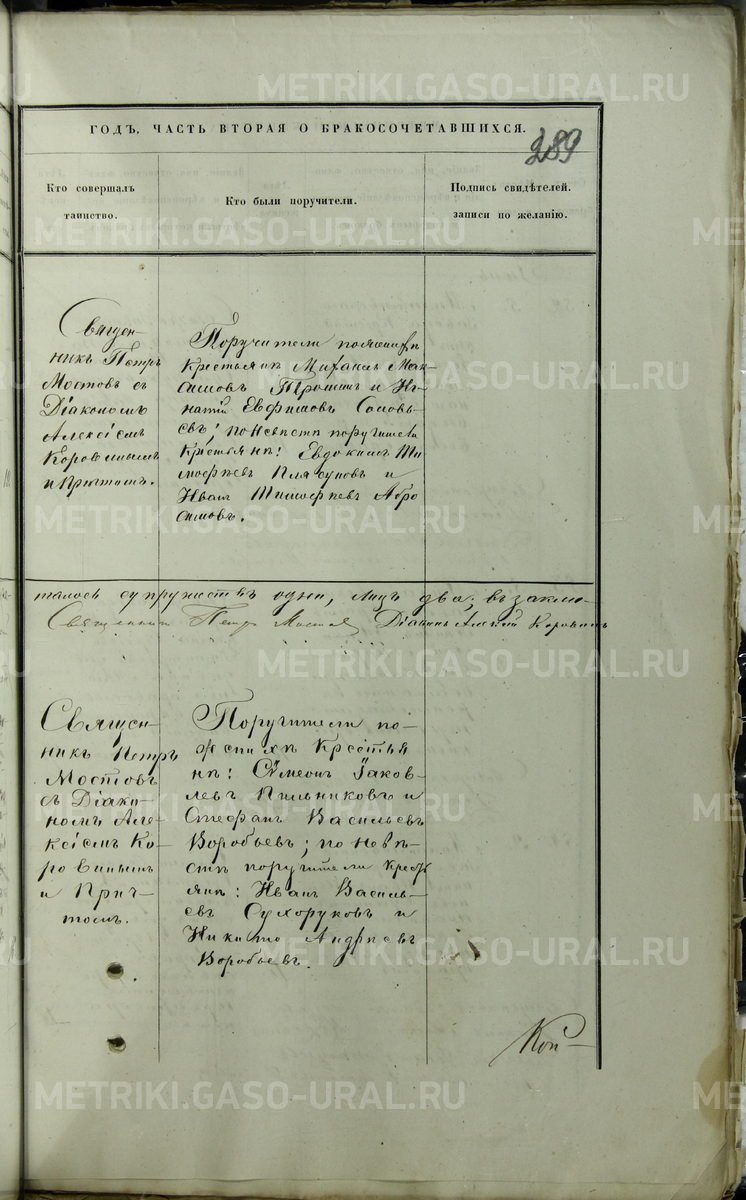 METRIKI.GASO-URAL.RU
ГОДЪ, ЧАСТЬ ВТОРАЯ О БРАКОСОЧЕТАВШИХСЯ.
289
Кто совершалъ
таинство.
Кто были поручители.
Подпись свидѣтелей.
записи по желанію.
Священ-
никъ Петръ
Мостовъ съ
Діакономъ
Алексіемъ
Коровинымъ
и Притчомъ.
Поручители по женихѣ
Крестьянѣ Михаилъ Мак-
симовъ Трошинъ и Иг-
натій Евфимовъ Соловь-
евъ; по невѣстѣ поручители
Крестьянѣ: Евдокимъ Ти-
мофѣевъ Плясуновъ и
Иванъ Тимофѣевъ Абро-
симовъ.
талось супружествъ одни, лицъ два; въ заклю-
Священникъ Петръ Мостовъ Діаконъ Алексій Коровинъ
Священ-
никъ Петръ
Мостовъ
съ Діако-
номъ Але-
ксіемъ Ко-
ровинымъ
и Прич-
томъ.
Поручители по
женихѣ Крестья
нѣ: Сѷмеонъ Іаков-
левъ Пильниковъ и
Стефанъ Васильевъ
Воробьевъ; по невѣ-
стѣ поручители Крестья
янѣ: Иванъ Василь-
евъ Сухоруковъ и
Никита Андреевъ
Воробьевъ.
Коп-